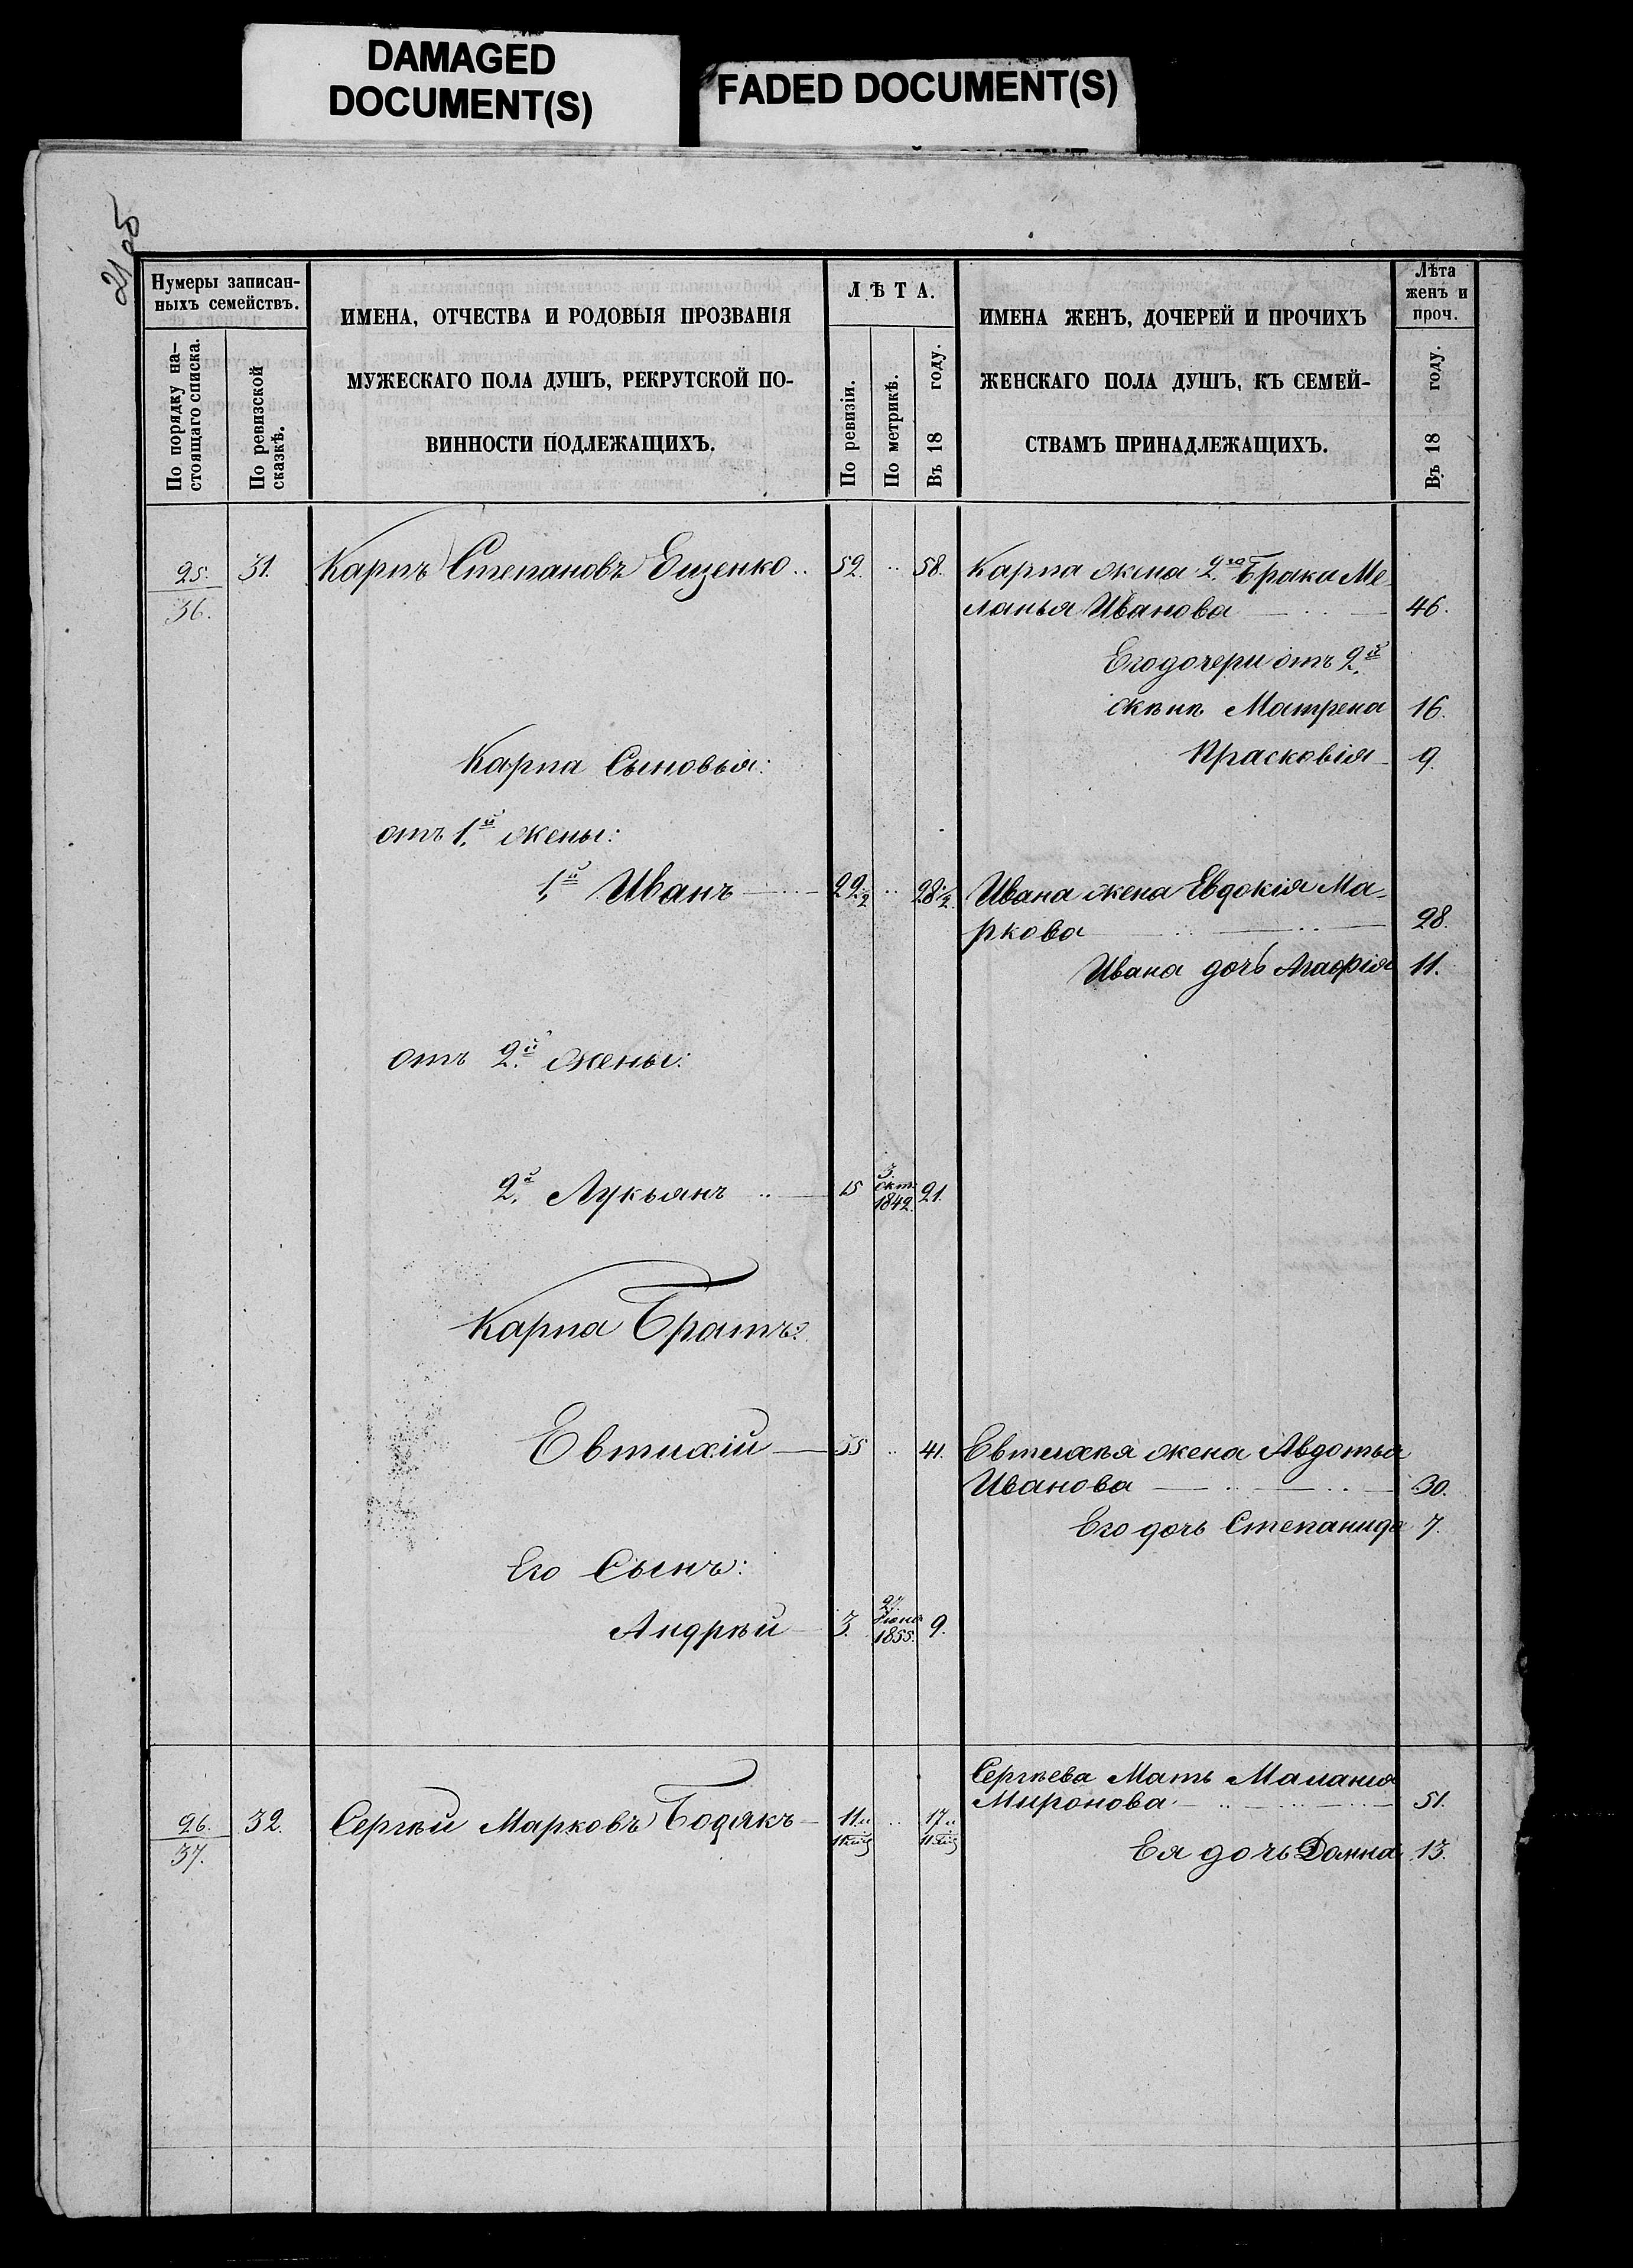 DAMAGED
DOCUMENT(S)
FADED DOCUMENT(S)
Нумеры записан-
ныхъ семействъ.
По порядку на-
стоящаго списка.
По ревизской
сказкѣ.
ИМЕНА, ОТЧЕСТВА И РОДОВЫЯ ПРОЗВАНІЯ
МУЖЕСКАГО ПОЛА ДУШЪ, РЕКРУТСКОЙ ПО-
ВИННОСТИ ПОДЛЕЖАЩИХЪ.
ЛѢТА.
По ревизіи.
По метрикѣ.
Въ 18 году.
ИМЕНА ЖЕНЪ, ДОЧЕРЕЙ И ПРОЧИХЪ
ЖЕНСКАГО ПОЛА ДУШЪ, КЪ СЕМЕЙ-
СТВАМЪ ПРИНАДЛЕЖАЩИХЪ.
Лѣта
женъ и
проч.
Въ 18 году.
25. 31. Карпъ Степановъ Ещенко.. 52. .. 58. Карпа жена 2.го Брака Ме
36. ланья Иванова 46.
Его дочери отъ 2.й
жѣнъ Матрена 16.
Карпа Сыновья: Прасковія 9.
отъ 1.й жены:
1.й Иванъ 22½ .. 28½. Ивана жена Евдокія Ма-
ркова 28.
Ивана дочь Агафія 11.
отъ 2.й жены:
2.й Лукьянъ .. 15 3. окт. 1842. 21.
Карпа Братъ:
Евтихій 35 .. 41. Евтихѣя жена Авдотья
Иванова 30.
Его дочь Степанида 7.
Его Сынъ:
Андрѣй 3. 27. Іюня 1855. 9.
Сергѣева Мать Маланія
26. 32. Сергѣй Марковъ Бодякъ 11и .. 17и Миронова 51.
37. Ея дочь Домна 13.